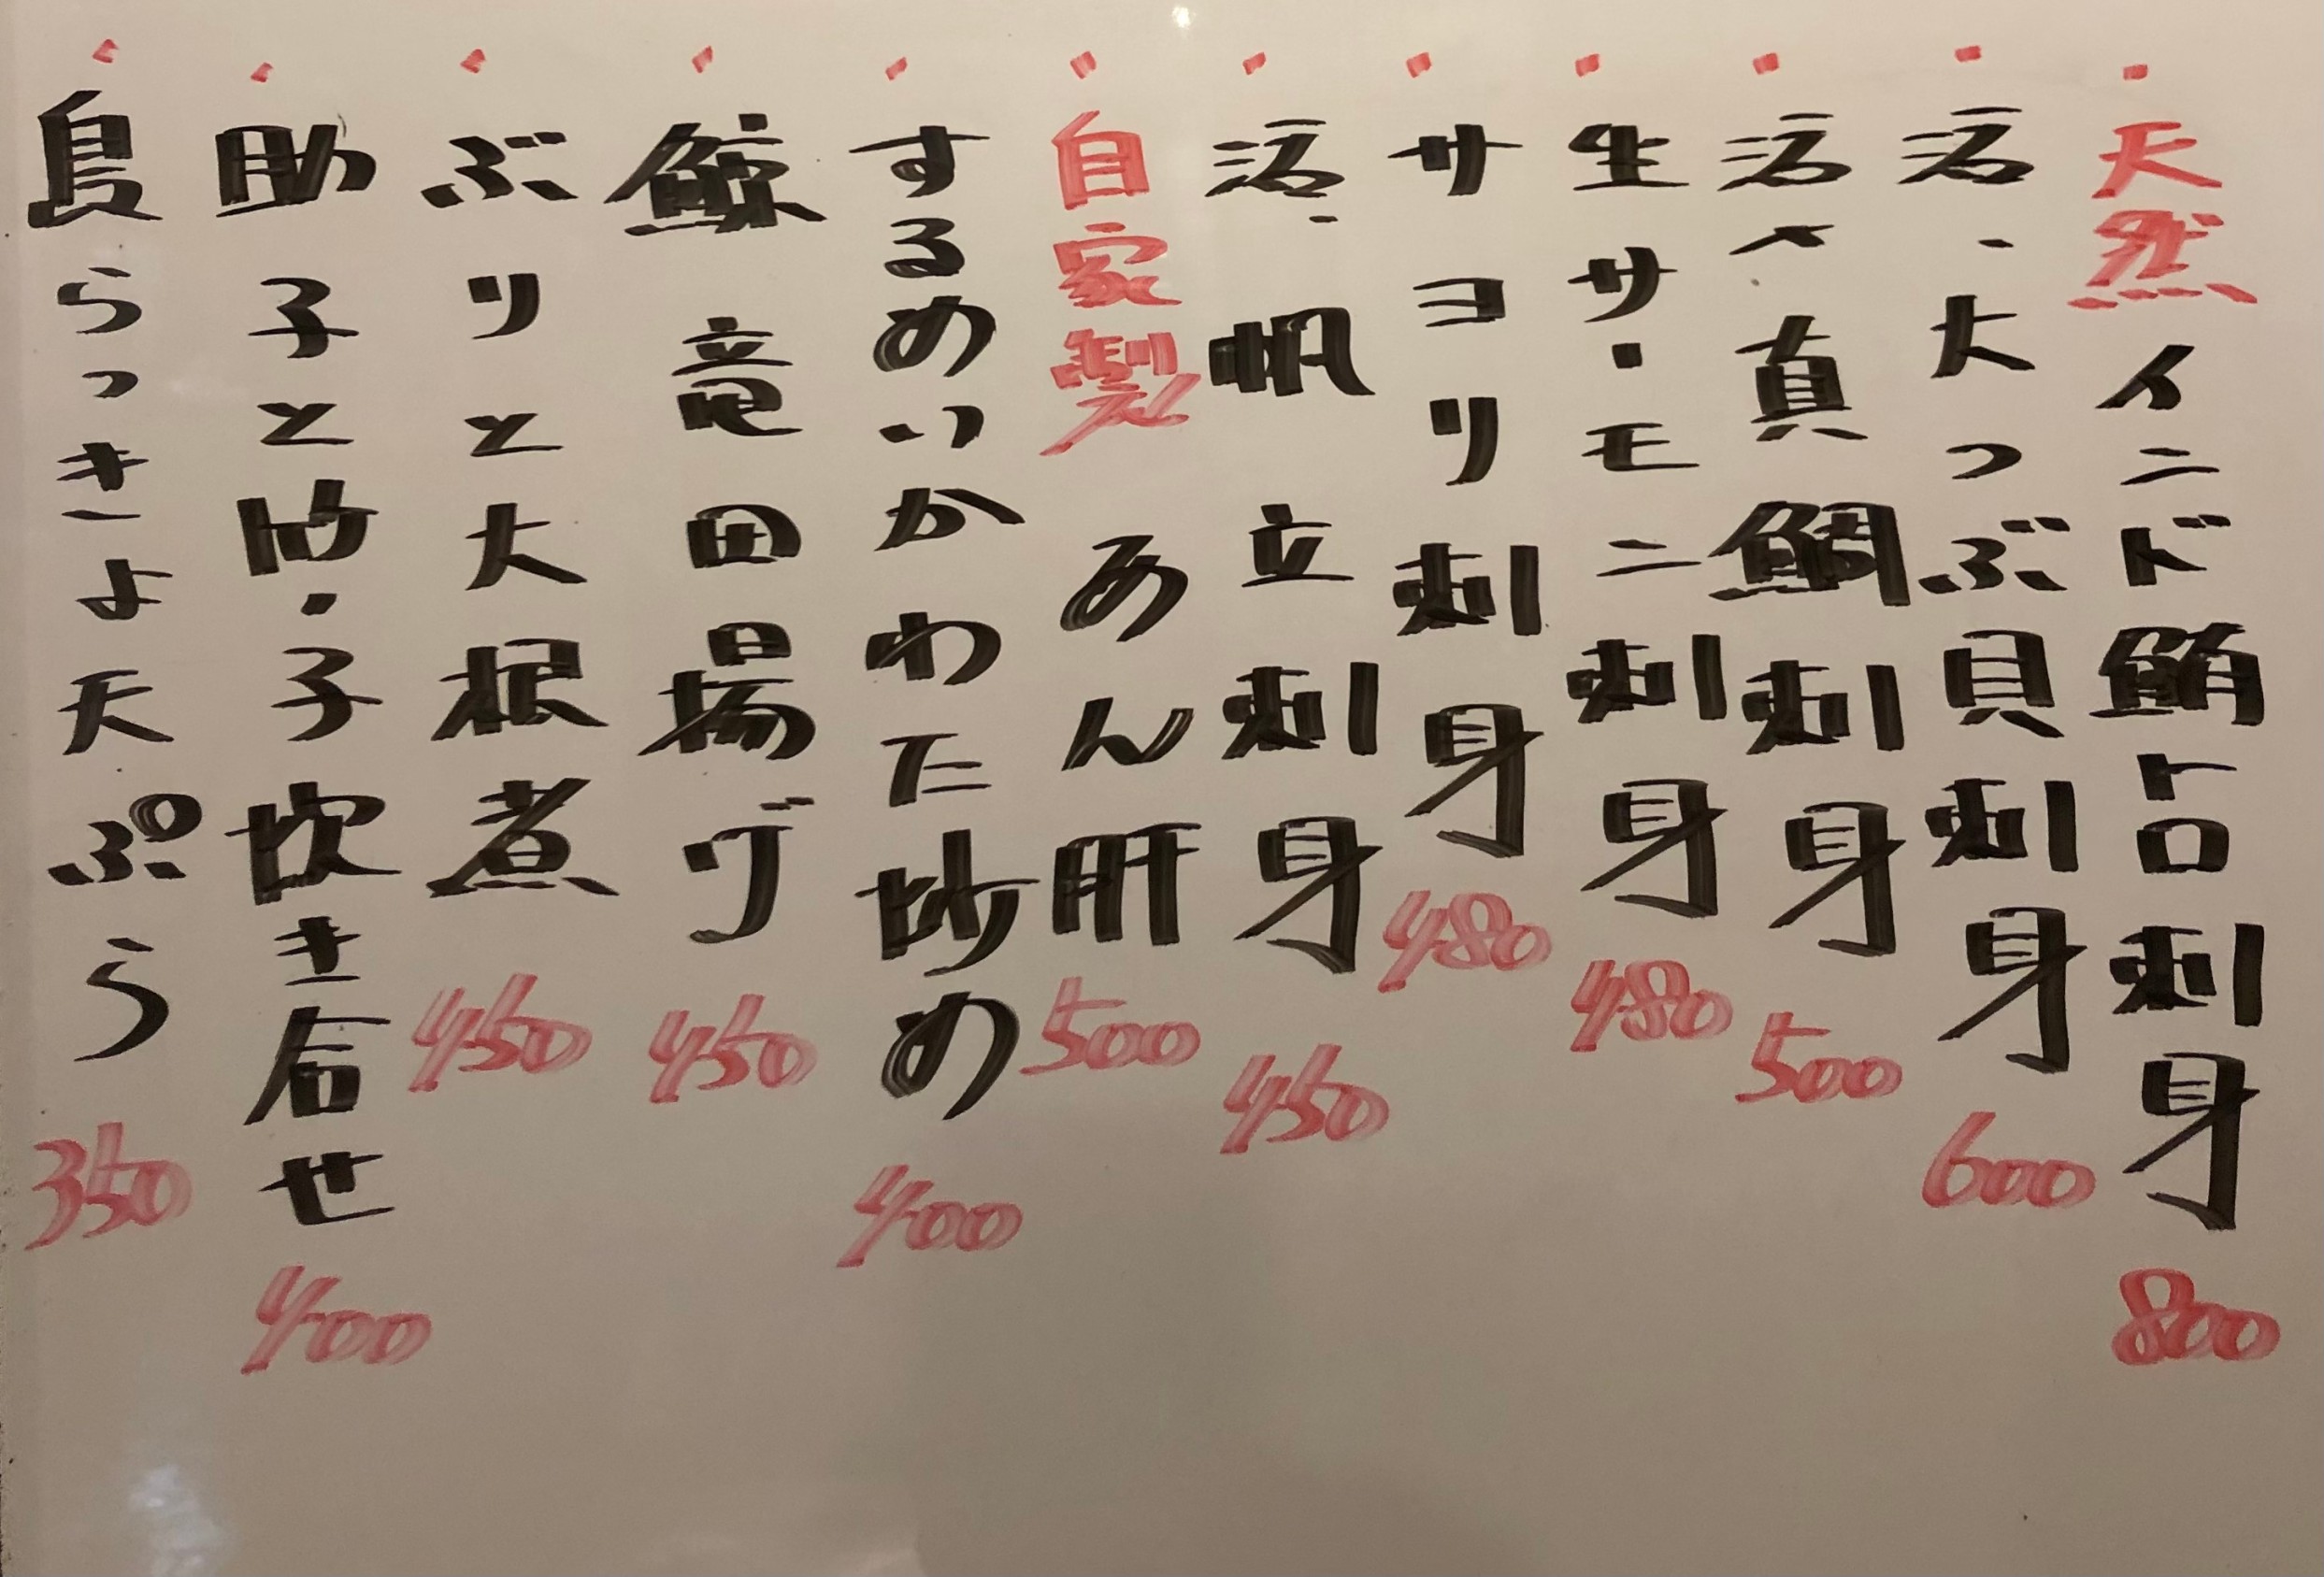 天然インド鮪トロ刺身 800
活、大つぶ貝刺身 600
活〆真鯛刺身 500
生サーモン刺身 480
サヨリ刺身 480
活、帆立刺身 450
自家製 あん肝 500
するめいかわた炒め 400
鯨竜田揚げ 450
ぶりと大根煮 450
助子と竹の子炊き合せ 400
島らっきょ天ぷら 350